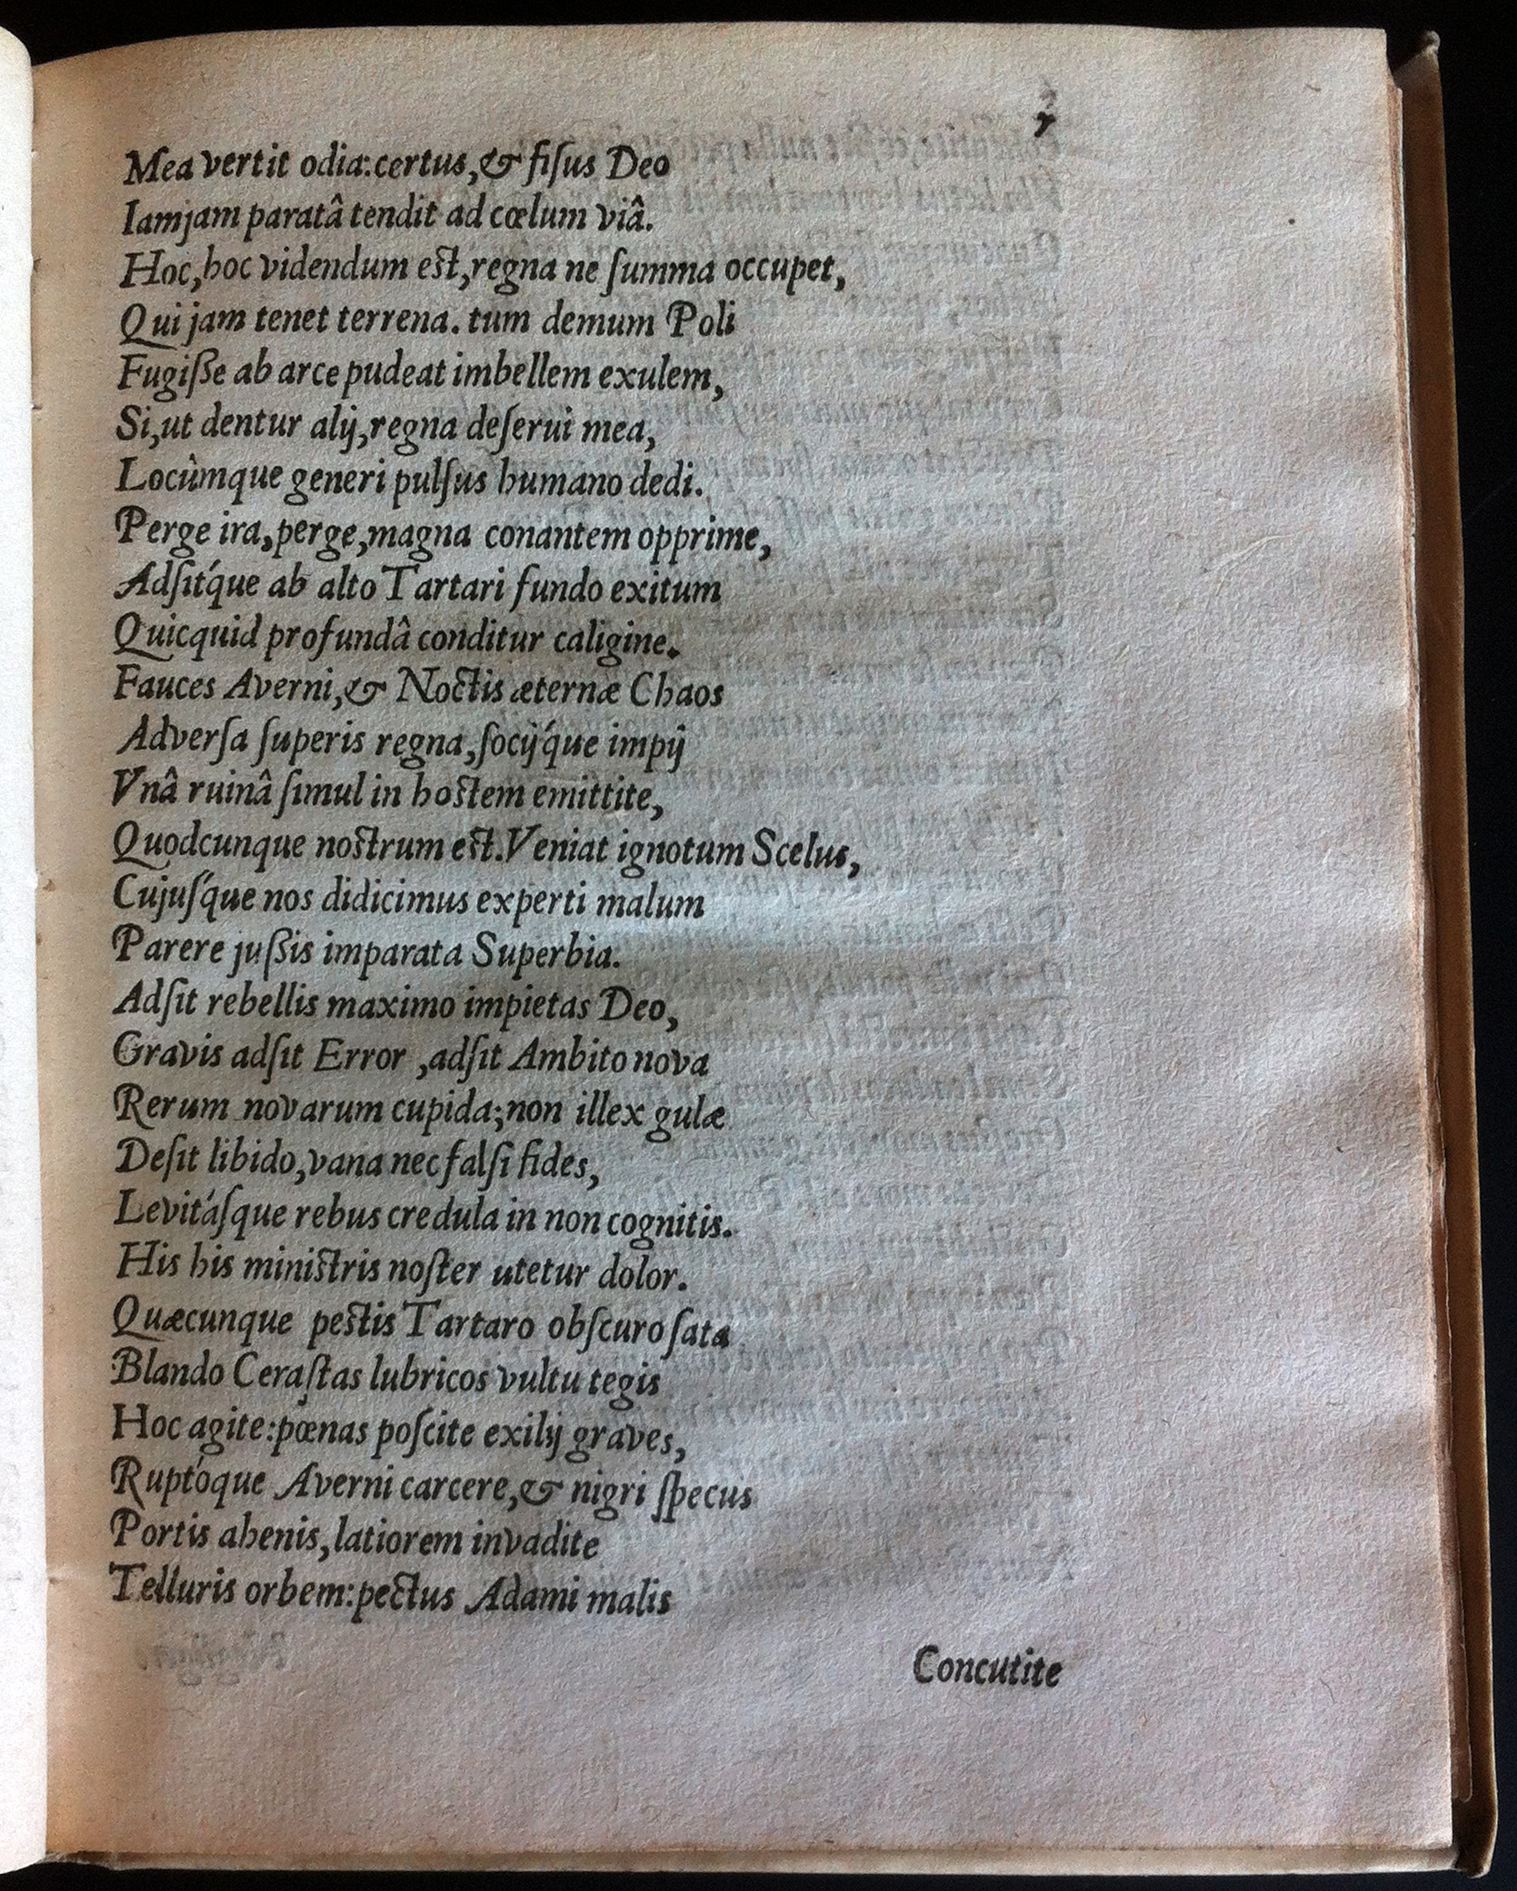 Mea vertit odia: certus, & fiſus Deo
Iamjam paratâ tendit ad cœlum viâ.
Hoc, hoc videndum eſt, regna ne ſumma occupet,
Qui jam tenet terrena. tum demum Poli
Fugiſſe ab arce pudeat imbellem exulem,
Si, ut dentur alij, regna deſerui mea,
Locûmque generi pulſus humano dedi.
Perge ira, perge, magna conantem opprime,
Adſit́que ab alto Tartari fundo exitum
Quicquid profundâ conditur caligine.
Fauces Averni, & Noctis æternæ Chaos
Adverſa ſuperis regna, ſocij́que impij
Vnâ ruinâ ſimul in hoſtem emittite,
Quodcunque noſtrum eſt. Veniat ignotum Scelus,
Cujuſ́que nos didicimus experti malum
Parere juſſis imparata Superbia.
Adſit rebellis maximo impietas Deo,
Gravis adſit Error, adſit Ambito nova
Rerum novarum cupida; non illex gulæ
Deſit libido, vana nec falſi fides,
Levitáſque rebus credula in non cognitis.
His his miniſtris noſter utetur dolor.
Quæcunque peſtis Tartaro obſcuro ſata
Blando Ceraſtas lubricos vultu tegis
Hoc agite: pœnas poſcite exilij graves,
Ruptóque Averni carcere, & nigri ſpecus
Portis ahenis, latiorem invadite
Telluris orbem: pectus Adami malis
Concutite